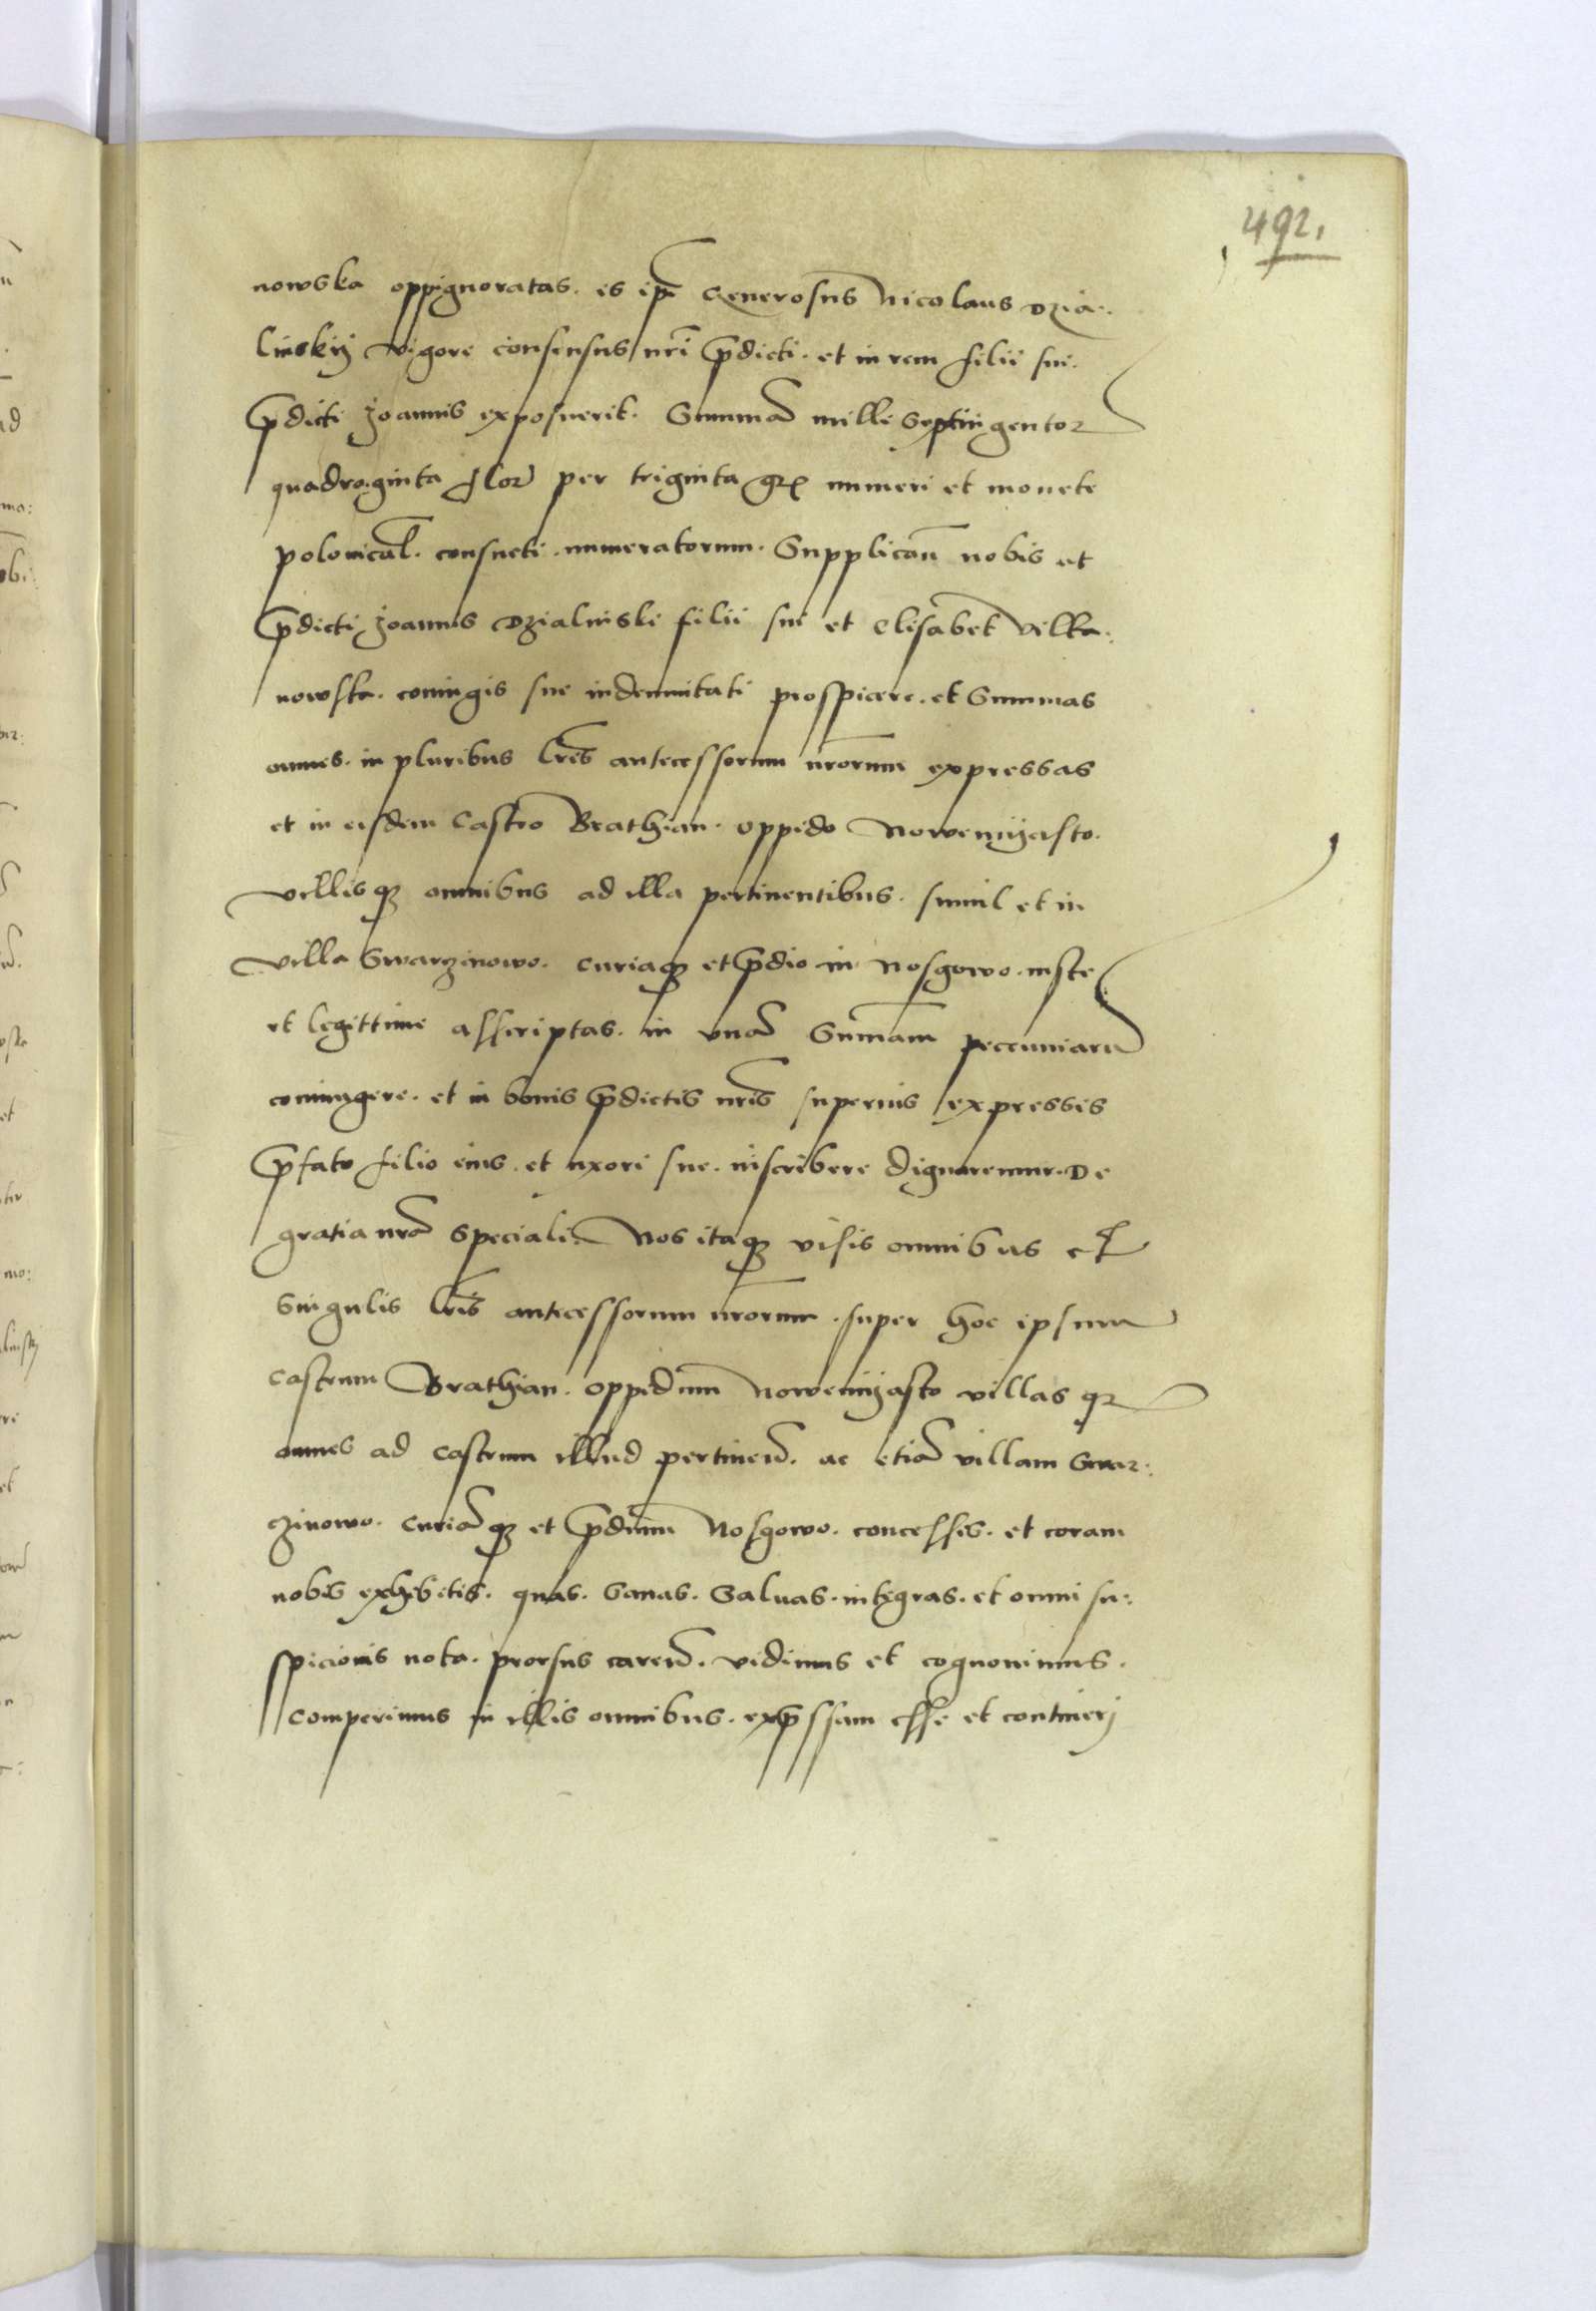 492.
nowska oppignoratas. is ip̃e Generosus Nicolaus Dzia:
linskij vigore consensus nr̃i p̃dicti. et in rem filii sui.
p̃dicti Joannis exposuerit. Summã mille Septingentoꝝ
quadraginta floꝝ per triginta gr̃ numeri et monete
polonical̃. consueti. numeratorum. Supplicañ nobis et
p̃dicti Joannis Dzialinski filii sui et Elisabet̃ Vilka:
nowska. coniugis sue indemnitati prospicere. et Summas
omnes. in pluribus lr̃is antecessorum nr̃orum expressas
et in eisdem Castro Brathian. oppido Nowemijasto.
villisqꝫ omnibus ad illa pertinentibus. simul et in
villa Swarzinowo. curiaqꝫ et p̃dio in Nosgowo. iuste
et legittime asscriptas. in vnã Sum̃am peccuniarũ
coniungere. et in bonis p̃dictis nr̃is superius expressis
p̃fato filio eius. et uxori sue. inscribere dignaremur. De
gratia nrã speciali. Nos itaqꝫ visis omnibus et
Singulis lr̃is antecessorum nr̃orum. super hoc ipsum
castrum Brathian. oppidum Nowemijasto villasqꝫ
omnes ad castrum illud pertineñ. ac etiã villam Swar:
zinowo. curiãqꝫ et p̃dium Nosgowo. concessis. et coram
nobis exhibitis. quas. Sanas. Saluas. integras. et omni su:
spicionis nota. prorsus careñ. vidimus et cognouimus.
comperimus in illis omnibus. exp̃ssam esse et contineri